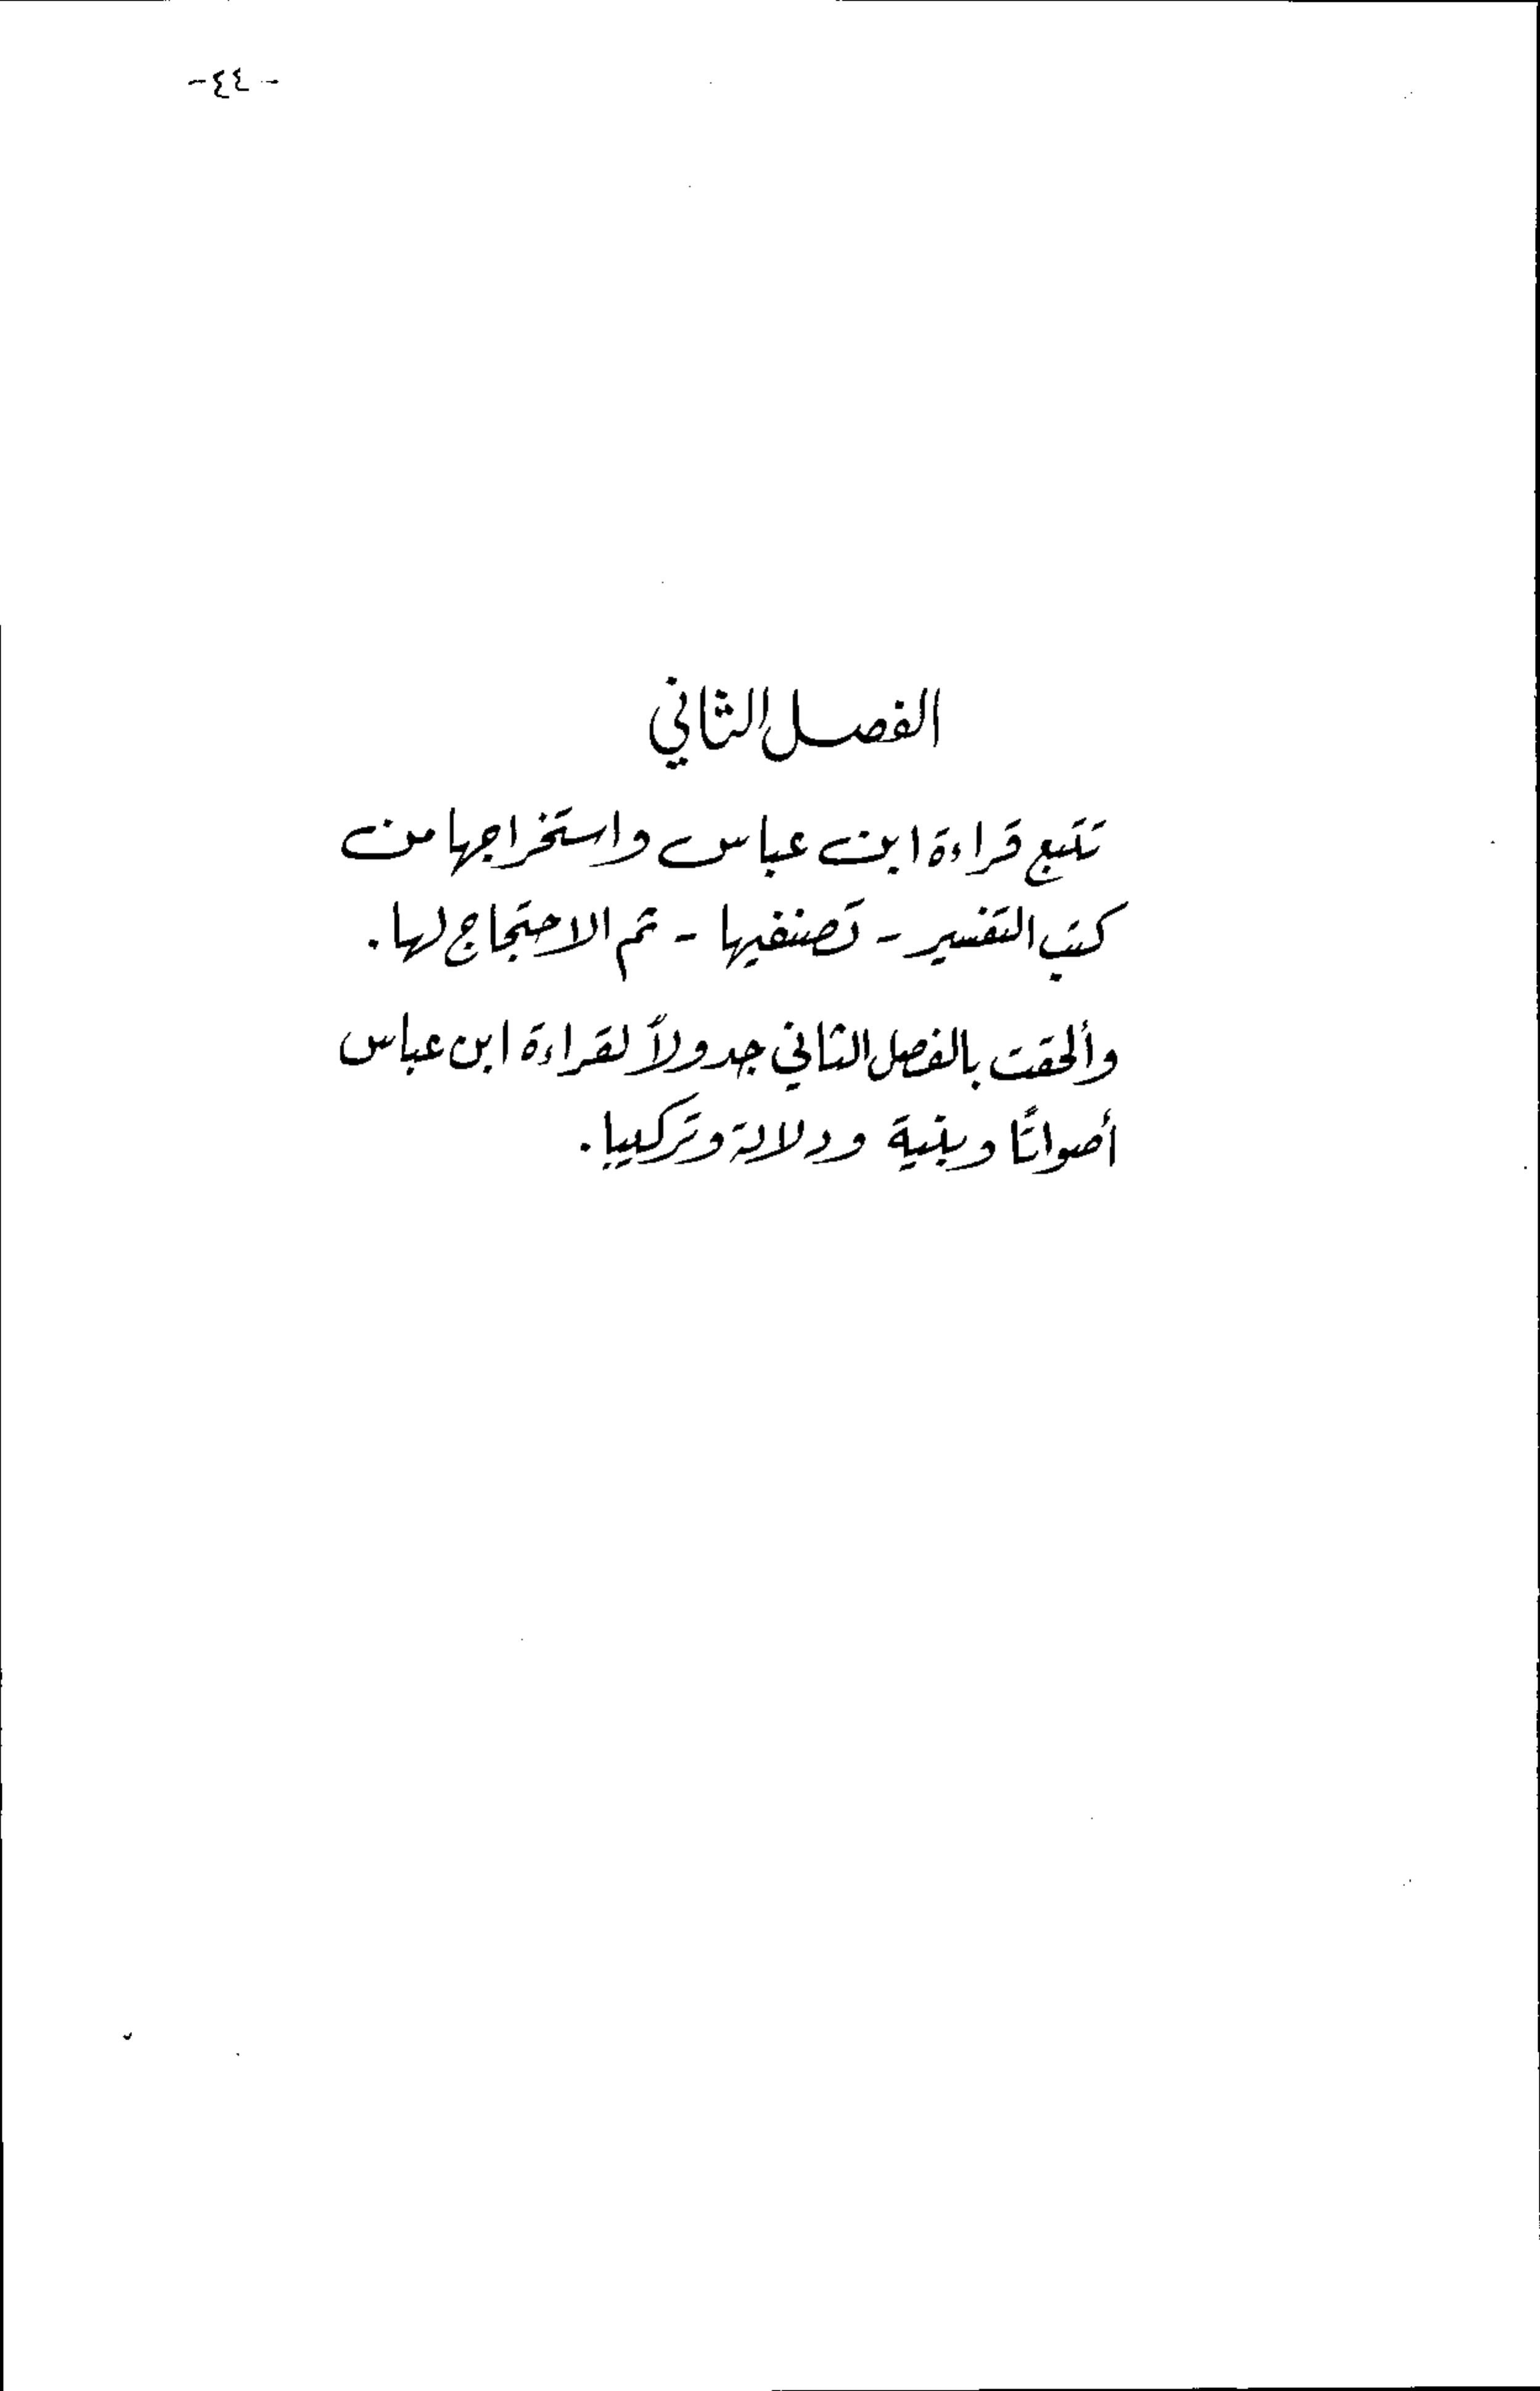 -٤٤-
الفصل الثاني
تتبع قراءة ابن عباس واستخراجها من
كتب التفسير - تصنيفها - ثم الاحتجاج لها.
وألحقت بالفصل الثاني جدولاً لقراءة ابن عباس
أصواتًا وبنية ودلالة وتركيبا.